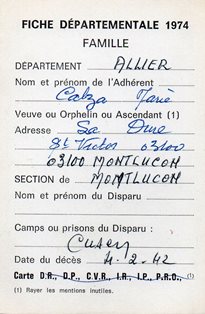 FICHE DÉPARTEMENTALE 1974
FAMILLE
DÉPARTEMENT ALLIER
Nom et prénom de l'Adhérent
Calza Marie
Veuve ou Orphelin ou Ascendant (1)
Adresse La Dure
St Victor 03100
03100 MONTLUCON
SECTION de MONTLUCON
Nom et prénom du Disparu
Camps ou prisons du Disparu :
Cusey
Date du décès 4-2-42
Carte D.R., D.P., C.V.R., I.R., I.P., P.R.O., (1)
(1) Rayer les mentions inutiles.